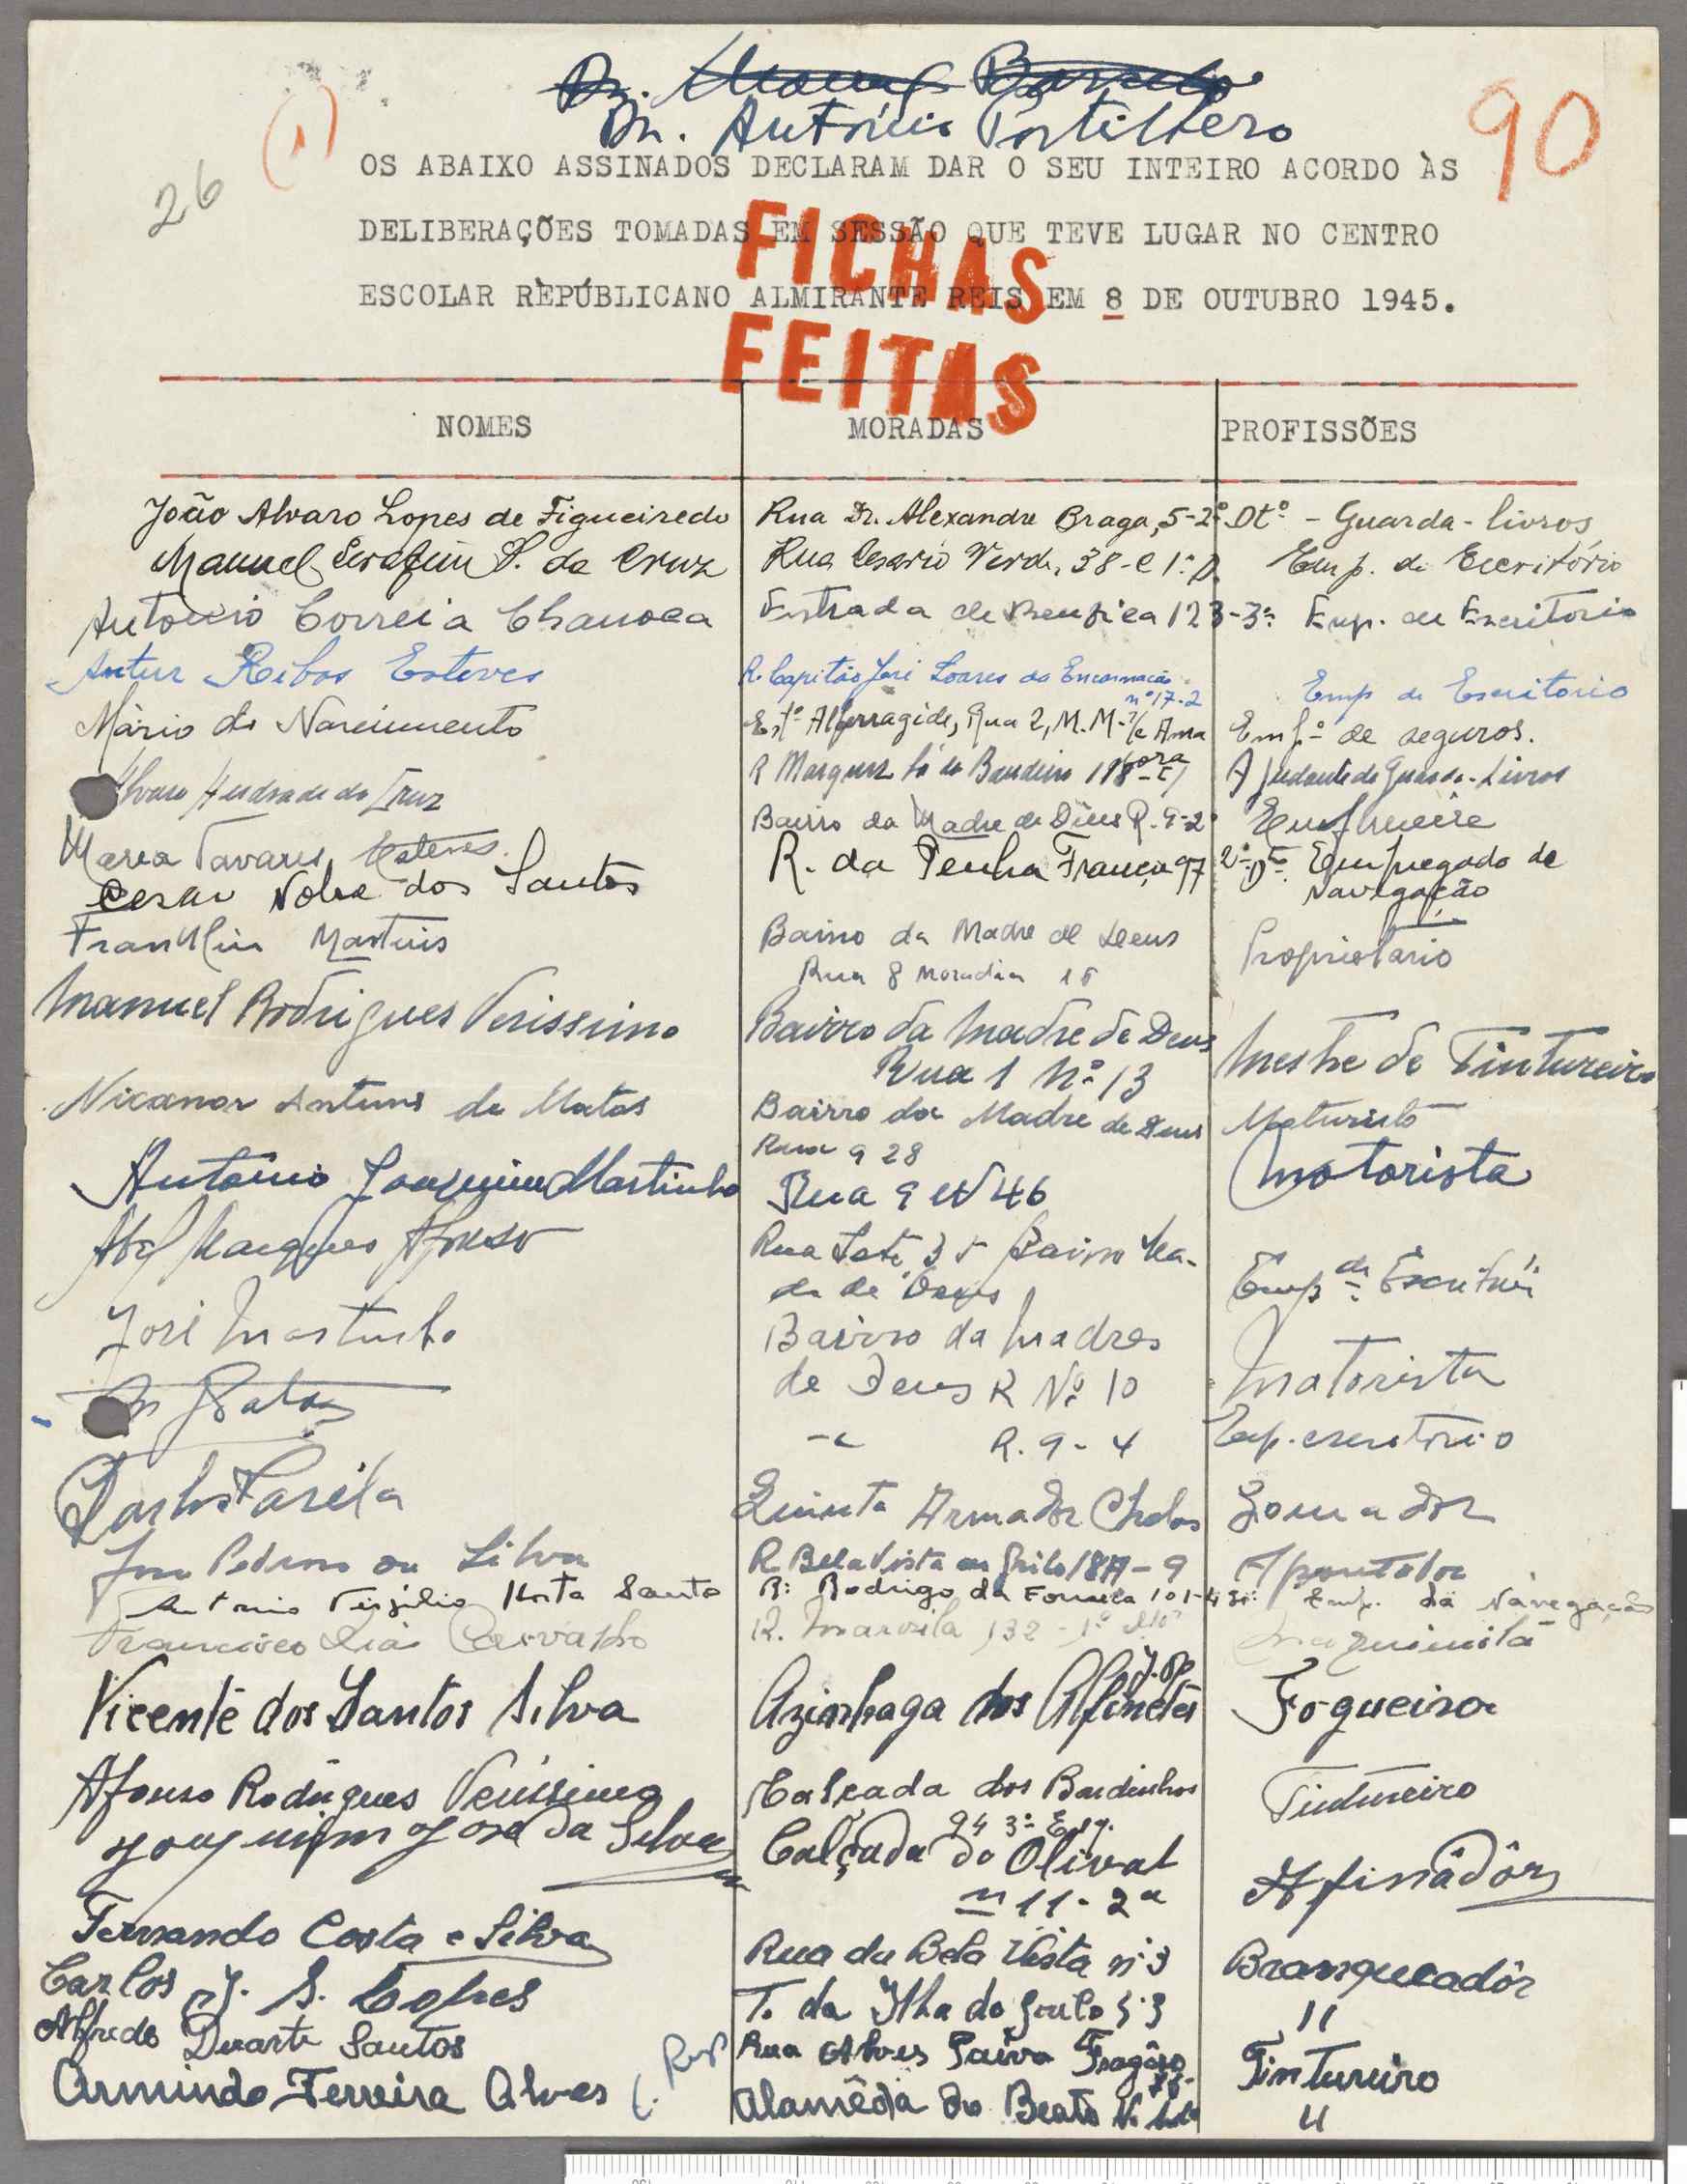 Dr.
Dr. António Portilhero
(1)
90
26
OS ABAIXO ASSINADOS DECLARAM DAR O SEU INTEIRO ACORDO ÀS
DELIBERAÇÕES TOMADAS EM SESSÃO QUE TEVE LUGAR NO CENTRO
ESCOLAR REPÚBLICANO ALMIRANTE REIS EM 8 DE OUTUBRO 1945.
FICHAS
FEITAS
NOMES MORADAS PROFISSÕES
João Alvaro Lopes de Figueiredo Rua Dr. Alexandre Braga, 5-2º Dtº - Guarda-livros
Manuel Serafim S. da Cruz Rua Cesario Verde, 38-C 1º D. Emp. de Escritório
Antonio Correia Chanoca Estrada de Benfica 123-3º Emp. de Escritorio
Artur Ribas Esteves R. Capitão José Soares da Encarnação nº 17-2 Emp de Escritorio
Mário do Nascimento Estº Alferragide, Rua 2, M.M. Amadora Empº de seguros.
Alvaro Andrade da Cruz R Marquez Sá da Bandeira 118 Ajudante de Guarda-Livros
Tavares Esteves Bairro da Madre de Deus R. 9-2
Cesar Nobre dos Santos R. da Penha França 97 2º Dtº Empregado de Navegação
Franklin Martins Bairro da Madre de Deus Proprietario
Rua 8 Moradia 16
Manuel Rodrigues Verissimo Bairro da Madre de Deus Mestre de Tintureiro
Rua 1 Nº 13
Nicanor Antunes de Matos Bairro da Madre de Deus
Rua 9 28
António Joaquim Martinho Rua 9 Nº 46 Motorista
Abel Marques Afonso Rua Sete 35 Bairro Ma-
dre de Deus Emp de Escritório
José Martinho Bairro da Madres Motorista
de Deus R Nº 10
R. 9-4 Emp. escritorio
Carlos Varela Quinta Armador Chelas
José Pedroso da Silva R Bela Vista ao Grilo 187A-9 Apontador
Antonio Virgilio Horta Santo R: Rodrigo da Fonseca 101-4 Emp. da Navegação
Francisco Dias Carvalho R. Marvila 132-1º Dtº Maquinista
Vicente dos Santos Silva Azinhaga dos Alfinetes Fogueiro
Afonso Rodrigues Verissimo Calçada dos Bardinhos Tintureiro
94 3º Esq.
Joaquim José da Silva Calçada do Olival Afinadôr
nº 11-2º
Fernando Costa e Silva Rua da Bela Vista nº 3 Branqueadôr
Carlos J. S. Lopes T. da Ilha do Grilo 3 "
Alfredo Duarte Santos Rua Alves Paiva Fragoso Tintureiro
Armindo Ferreira Alves Alamêda do Beato "